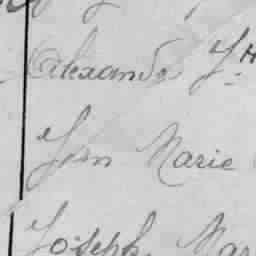 Alexandre
Jean Marie
Joseph Mar